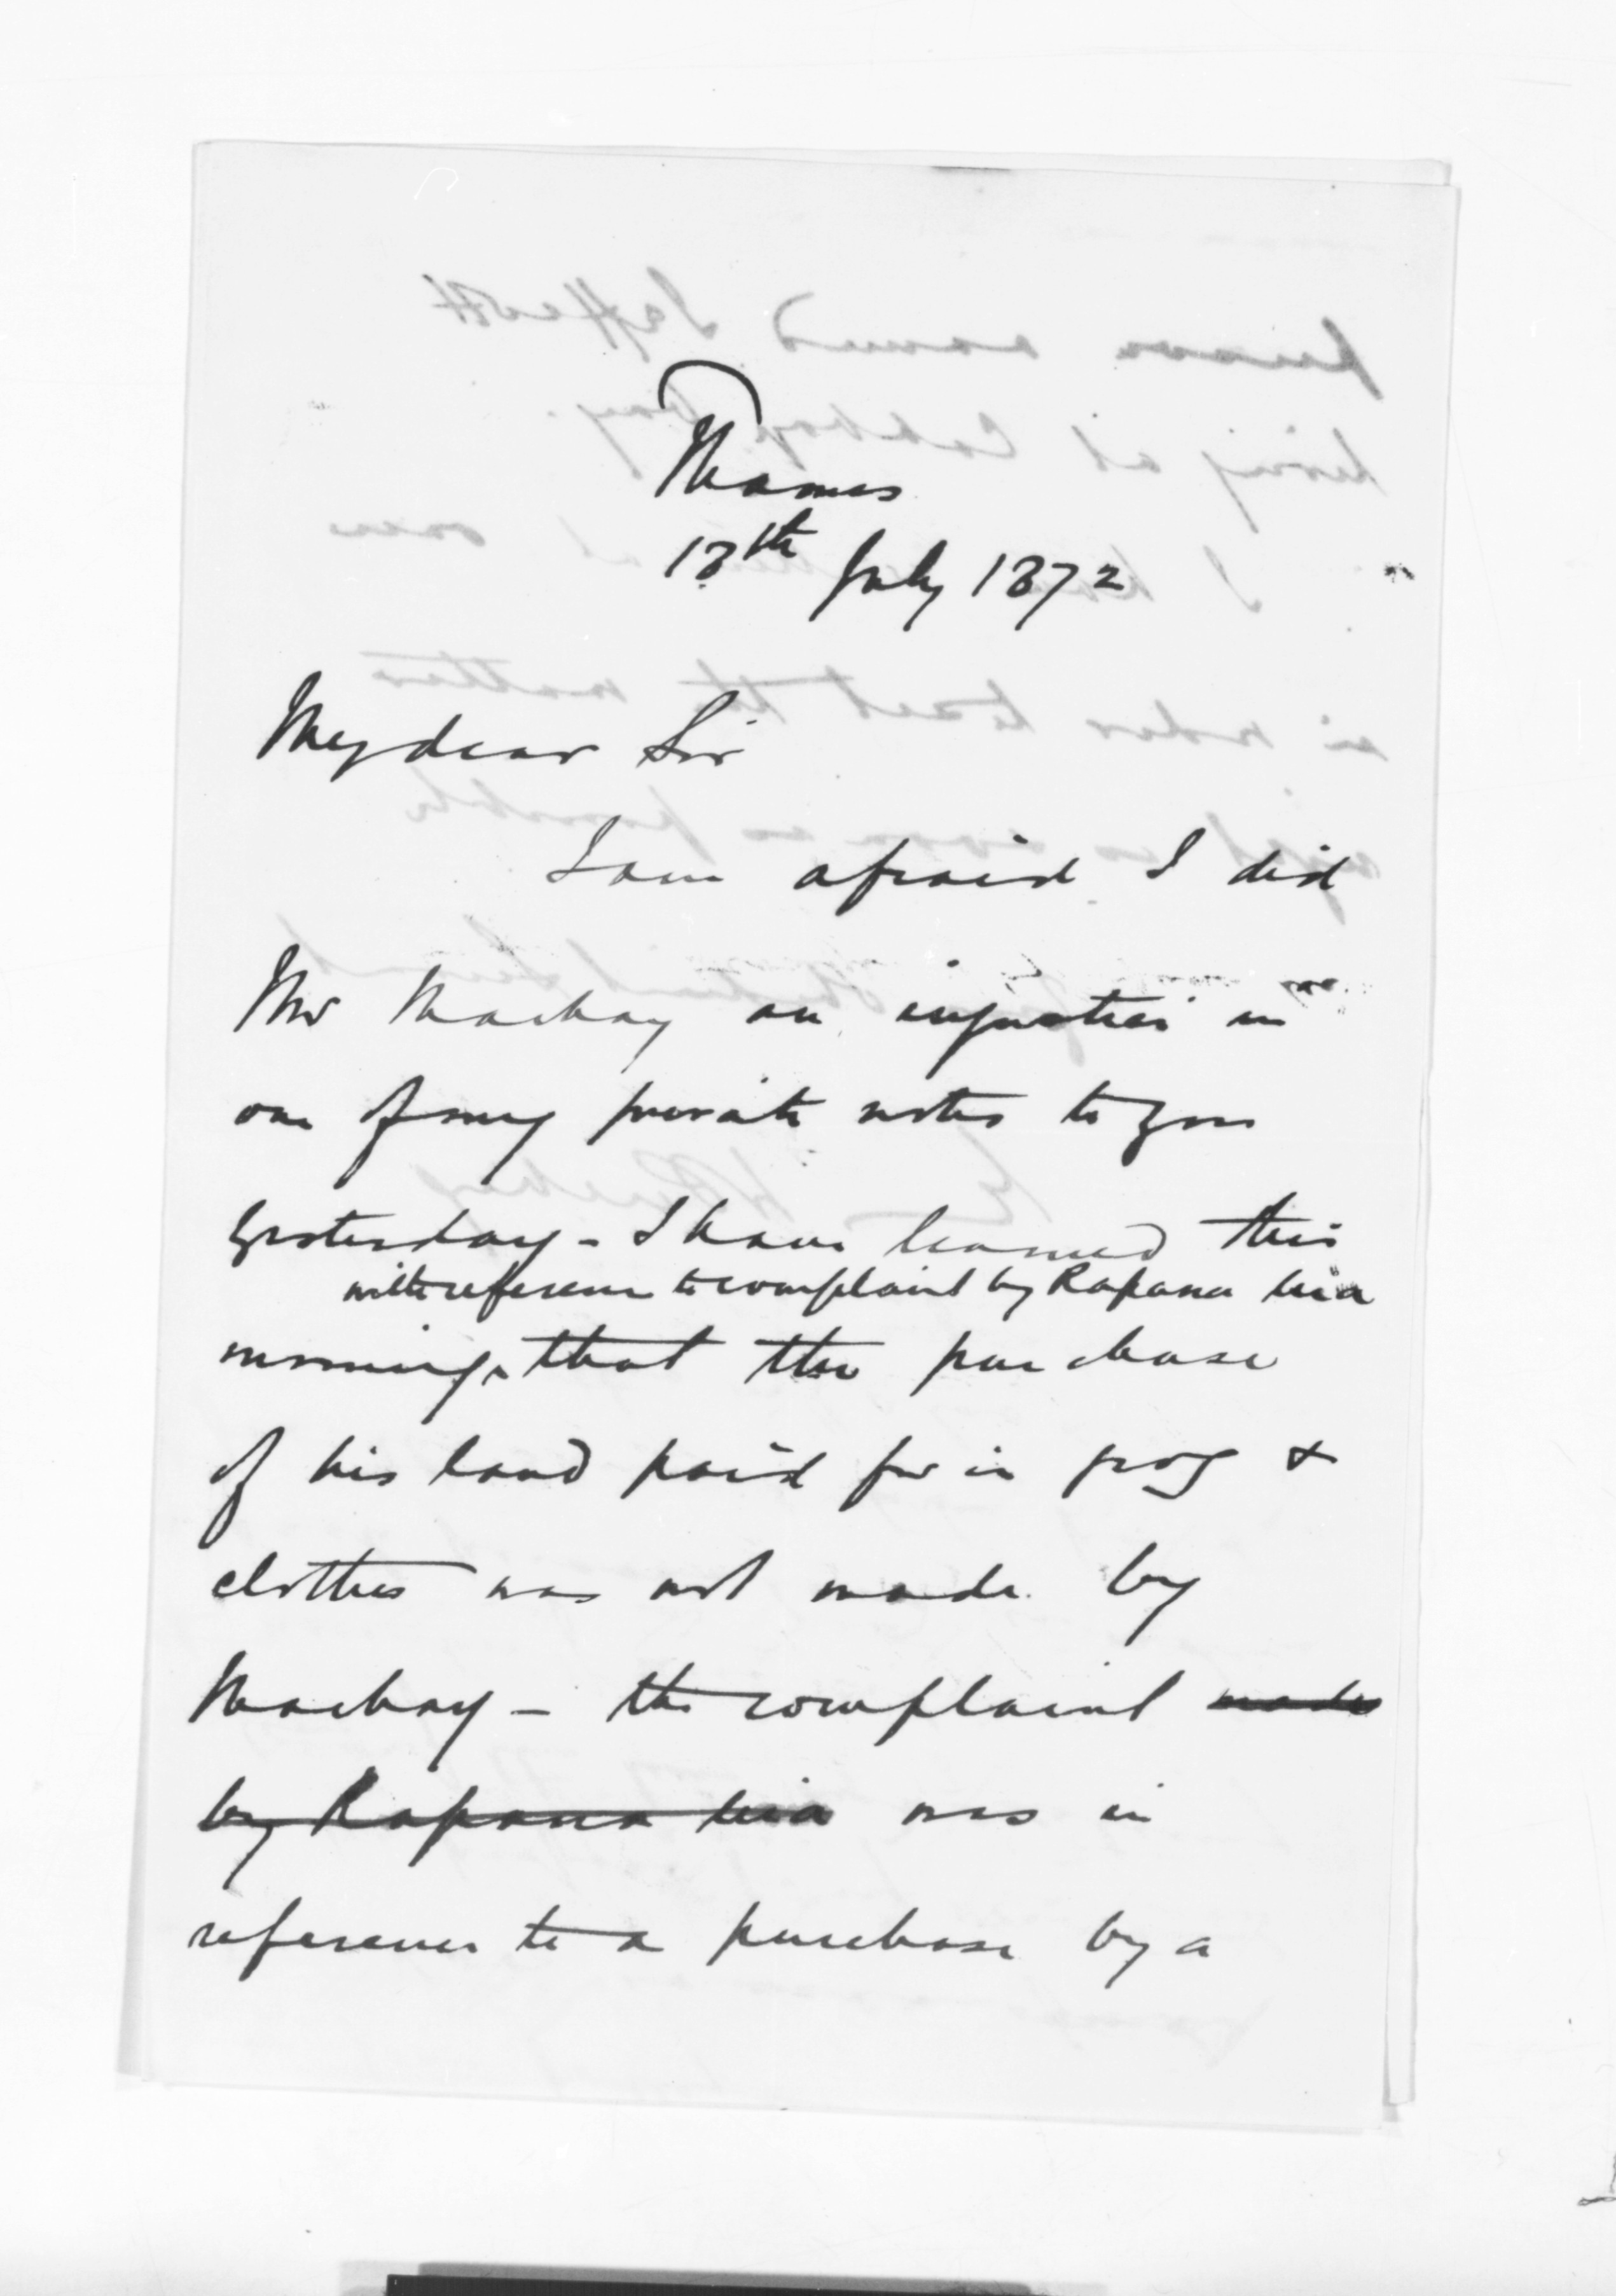 Thames
18th July 1872
My dear Sir
I am afraid I did
Mr Mackay an injustice in
one of my private notes to you
yesterday - I have learned this
with reference to complaint by Rapana hia
morning, that the purchase
of his land paid for in grog &
clothes was not made by
Mackay - the complaint made
by Rapana hia was in
reference to a purchase by a